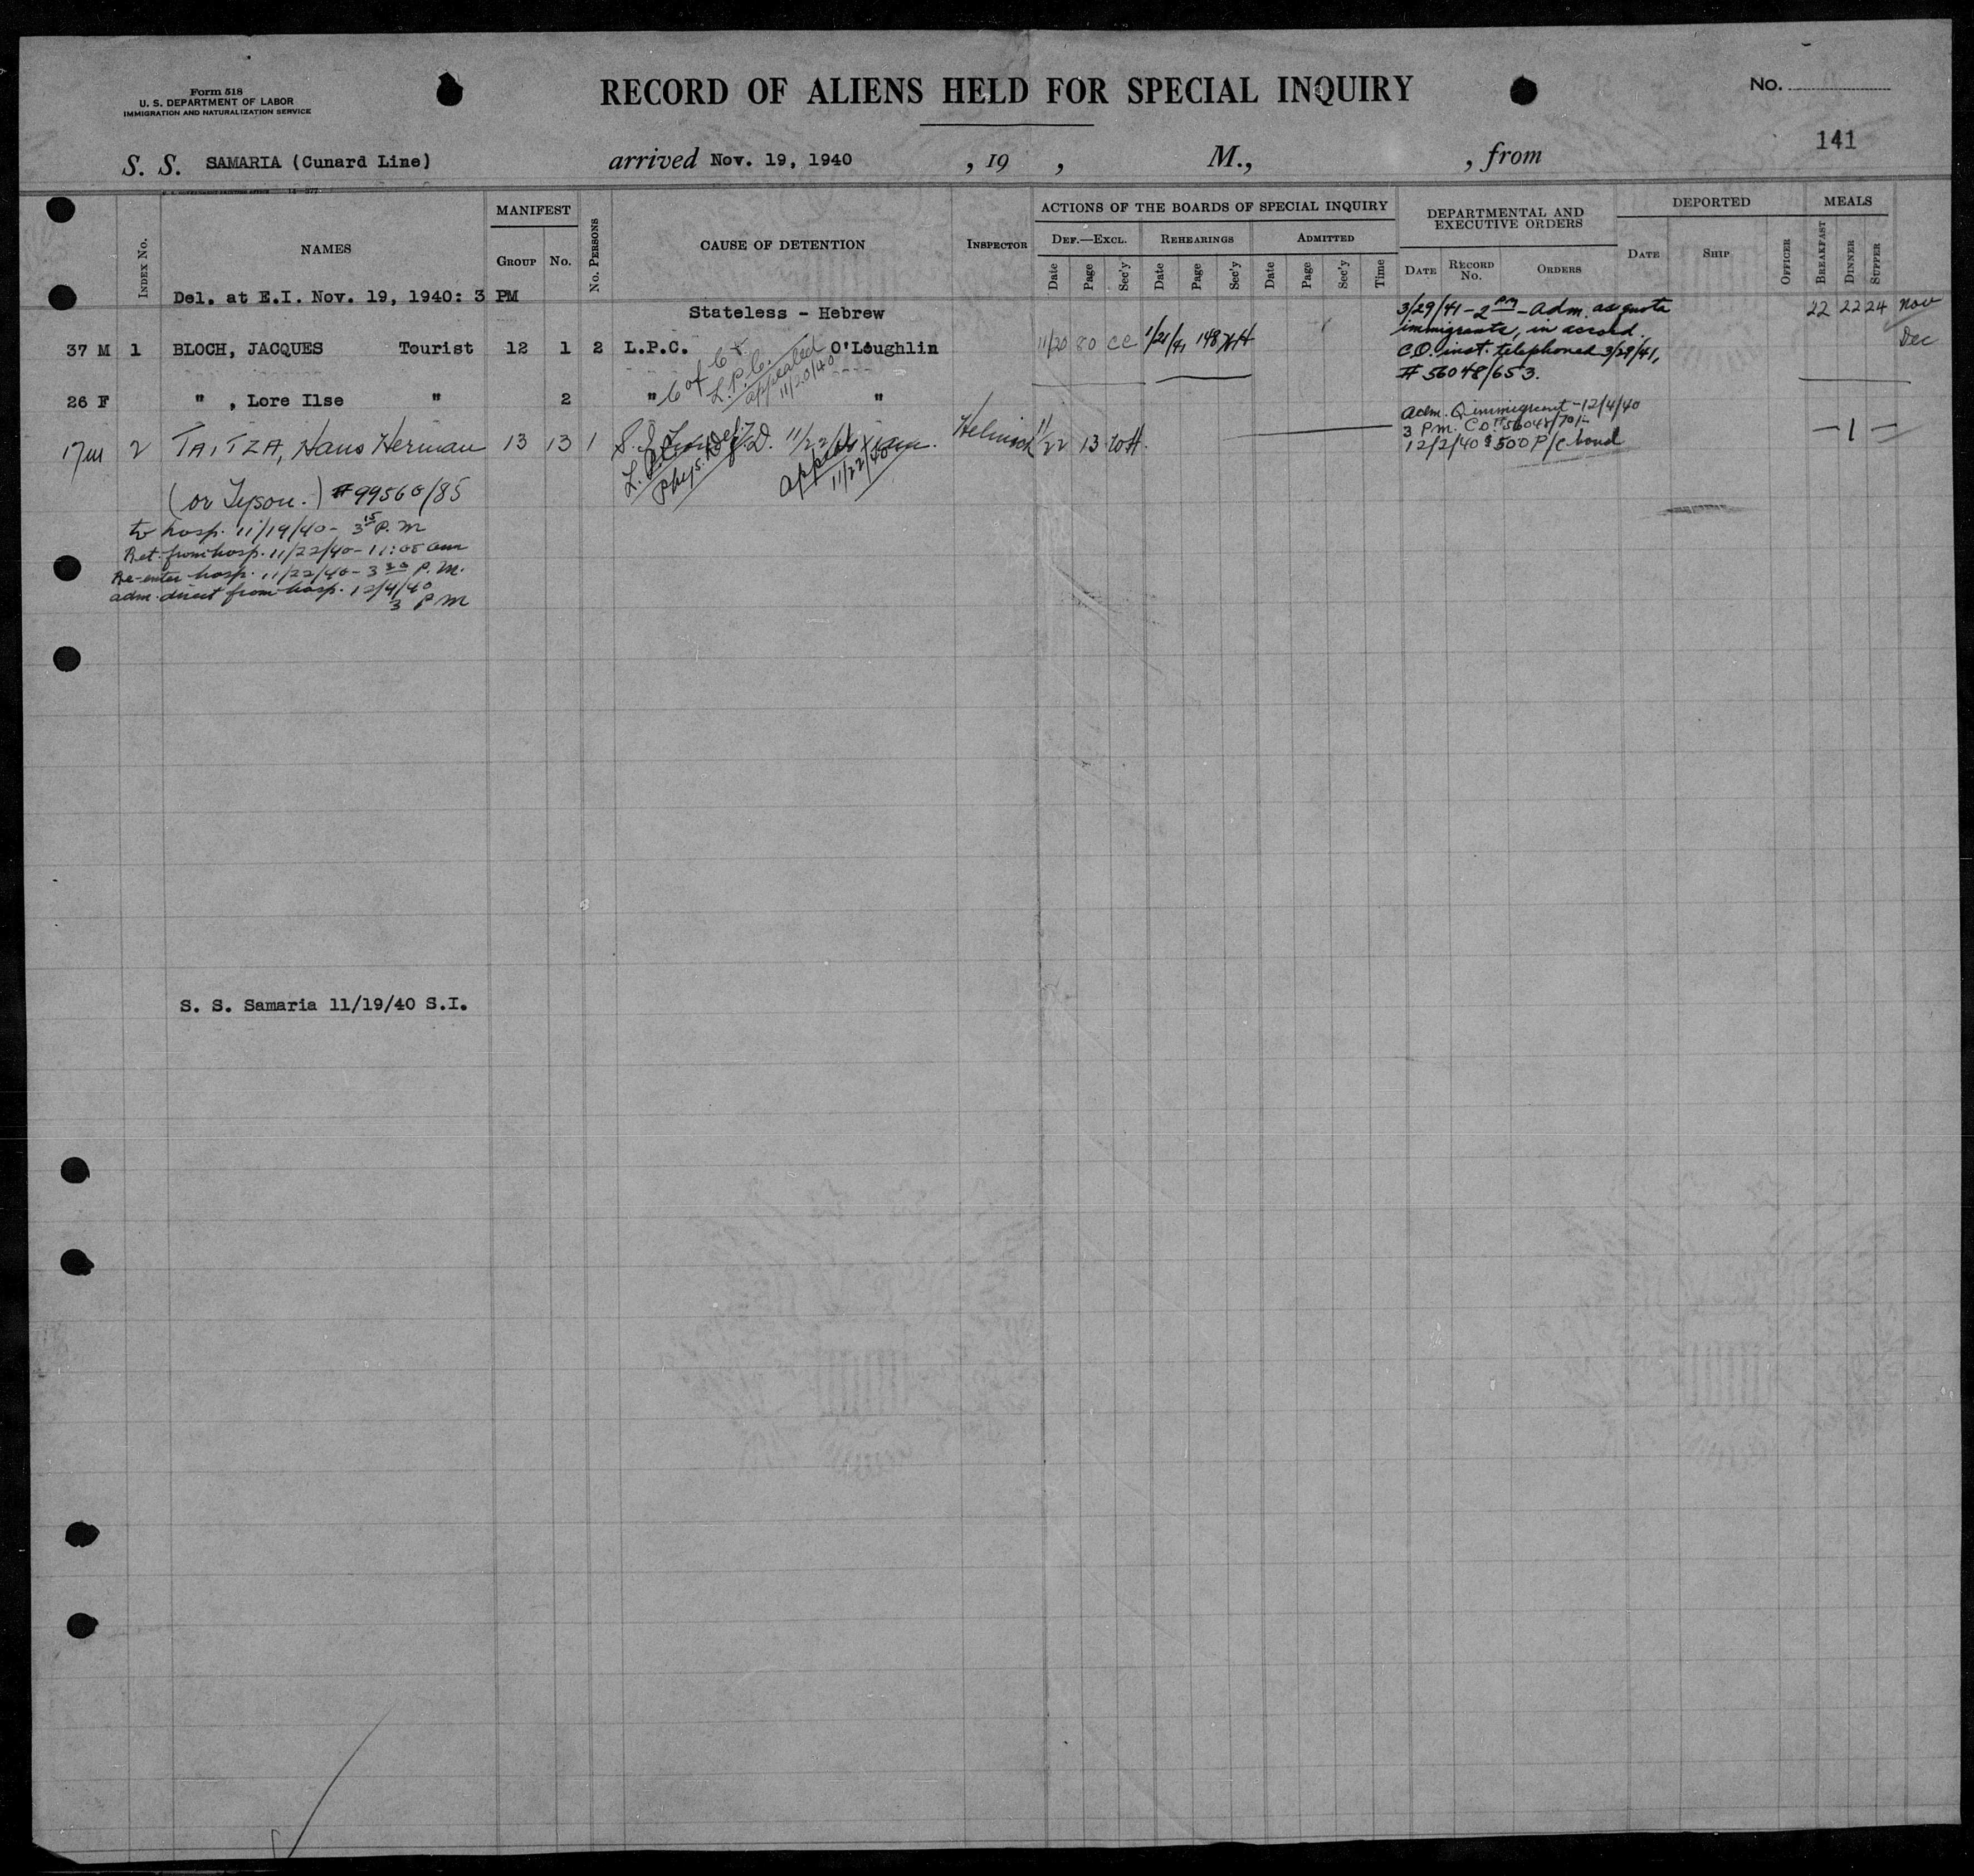 Form 518
U. S. DEPARTMENT OF LABOR
IMMIGRATION AND NATURALIZATION SERVICE
RECORD OF ALIENS HELD FOR SPECIAL INQUIRY
No.
141
S. S. SAMARIA (Cunard Line) arrived Nov. 19, 1940 , 19 , M., , from
INDEX No. NAMES MANIFEST GROUP No. No. PERSONS CAUSE OF DETENTION INSPECTOR
ACTIONS OF THE BOARDS OF SPECIAL INQUIRY
DEF.—EXCL. REHEARINGS ADMITTED
Date Page Sec'y Date Page Sec'y Date Page Sec'y Time
DEPARTMENTAL AND EXECUTIVE ORDERS
DATE RECORD No. ORDERS
DEPORTED
DATE SHIP OFFICER
MEALS
BREAKFAST DINNER SUPPER
Del. at E.I. Nov. 19, 1940: 3 PM
Stateless - Hebrew
3/29/41 - 2 PM - Adm. as quota
immigrants, in accord.
C.O. inst. telephoned 3/29/41,
# 56048/653.
22 22 24 Nov
Dec
37 M 1 BLOCH, JACQUES Tourist 12 1 2 L.P.C. O'Loughlin 11/20 80 CC 1/21/41 148
L.P.C.
appealed
11/20/40
26 F " , Lore Ilse " 2 " "
17 M 2 TAITZA, Hans Herman 13 13 1 11/22 13
L.P.C.
Phys. Def.
11/22/40
Adm. Q immigrant - 12/4/40
3 P.M. C.O. # 56048/701-
12/2/40 $500 P/C bond
- 1 -
(or Tyson.) # 99560/85
to hosp. 11/19/40 - 3 15 P.M
Ret. from hosp. 11/22/40 - 11:05 am
Re-enter hosp. 11/22/40 - 3 30 P.M.
adm. direct from hosp. 12/4/40
3 P M
S. S. Samaria 11/19/40 S.I.